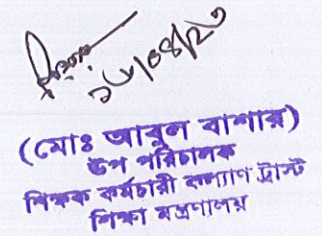 (মোঃ আবুল বাশার)
উপ পরিচালক
শিক্ষক কর্মচারী কল্যাণ ট্রাস্ট
শিক্ষা মন্ত্রণালয়